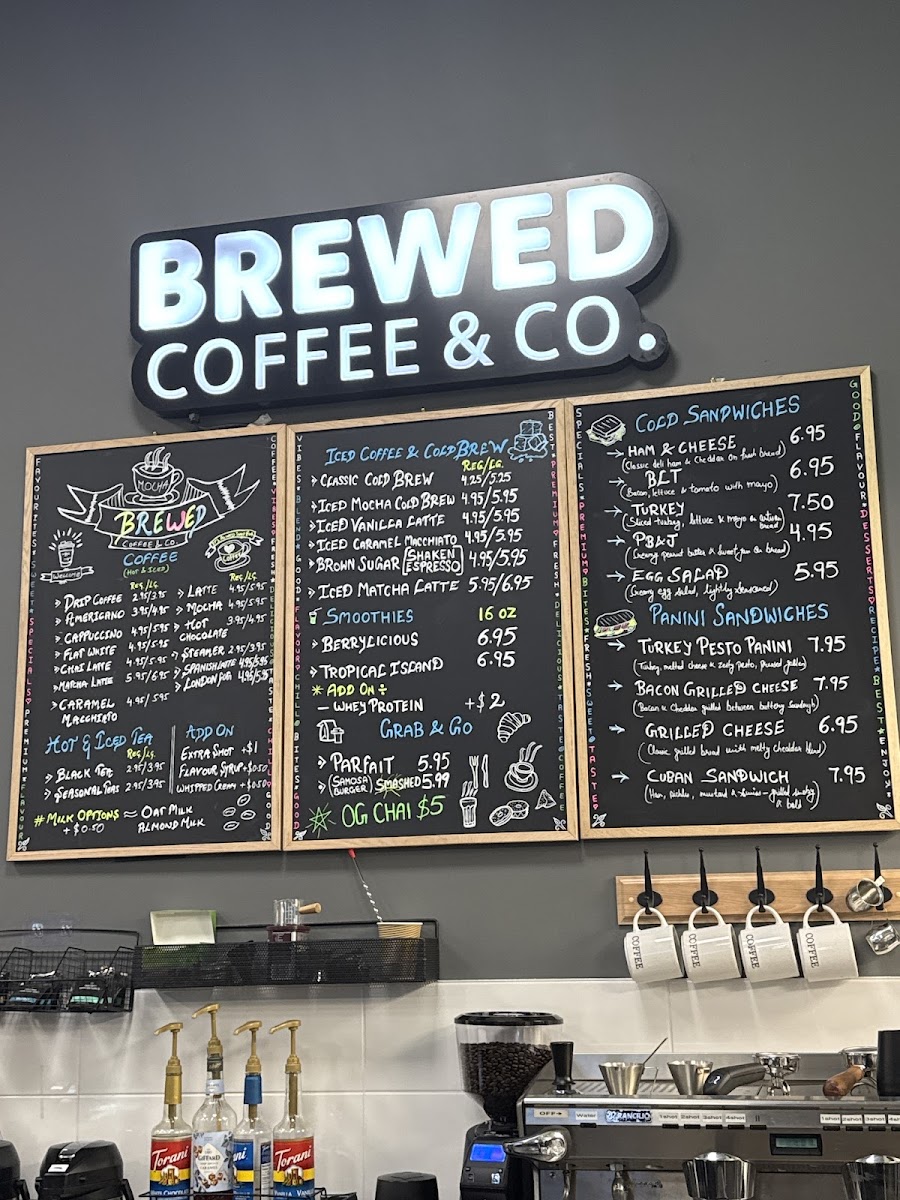 BREWED
COFFEE & CO.
FAVOURITES SWEET SPECIALS PREMIUM FLAVOUR
MOCHA
BREWED
COFFEE & CO.
COFFEE
(HOT & ICED)
WELCOME
REG/LG.
DRIP COFFEE 2.95/3.95
AMERICANO 3.95/4.95
CAPPUCCINO 4.95/5.95
FLAT WHITE 4.95/5.95
CHAI LATTE 4.95/5.95
MATCHA LATTE 5.95/6.95
CARAMEL MACCHIATO 4.95/5.95
REG/LG.
LATTE 4.95/5.95
MOCHA 4.95/5.95
HOT CHOCOLATE 3.95/4.95
STEAMER 2.95/3.95
SPANISH LATTE 4.95/5.95
LONDON FOG 4.95/5.95
HOT & ICED TEA
REG/LG.
BLACK TEA 2.95/3.95
SEASONAL TEAS 2.95/3.95
ADD ON
EXTRA SHOT +$1
FLAVOUR SYRUP +$0.50
WHIPPED CREAM +$0.50
# MILK OPTIONS ≈ OAT MILK
+$0.50 ALMOND MILK
ICED COFFEE & COLD BREW
REG/LG.
CLASSIC COLD BREW 4.25/5.25
ICED MOCHA COLD BREW 4.95/5.95
ICED VANILLA LATTE 4.95/5.95
ICED CARAMEL MACCHIATO 4.95/5.95
BROWN SUGAR SHAKEN ESPRESSO 4.95/5.95
ICED MATCHA LATTE 5.95/6.95
SMOOTHIES 16 OZ
BERRYLICIOUS 6.95
TROPICAL ISLAND 6.95
* ADD ON ÷
– WHEY PROTEIN +$2
GRAB & GO
PARFAIT 5.95
(SAMOSA BURGER) SMASHED 5.99
OG CHAI $5
COLD SANDWICHES
HAM & CHEESE 6.95
(Classic deli ham & Cheddar on fresh bread)
BLT 6.95
(Bacon, lettuce & tomato with mayo)
TURKEY 7.50
(Sliced turkey, lettuce & mayo on artisan bread)
PB&J 4.95
(Creamy peanut butter & sweet jam on bread)
EGG SALAD 5.95
(Creamy egg salad, lightly seasoned)
PANINI SANDWICHES
TURKEY PESTO PANINI 7.95
(Turkey, melted cheese & zesty pesto, pressed golden)
BACON GRILLED CHEESE 7.95
(Bacon & Cheddar grilled between buttery sourdough)
GRILLED CHEESE 6.95
(Classic grilled bread with melty cheddar blend)
CUBAN SANDWICH 7.95
(Ham, pickles, mustard & swiss – grilled smoky & bold)
GOOD FLAVOUR DESSERTS RECIPE BEST ENJOY
COFFEE
COFFEE
COFFEE
COFFEE
Torani
GIFFARD
Torani
OFF
Water
RANCILIO
1shot 2shot 3shot 4shot
1shot 2shot 3shot 4shot